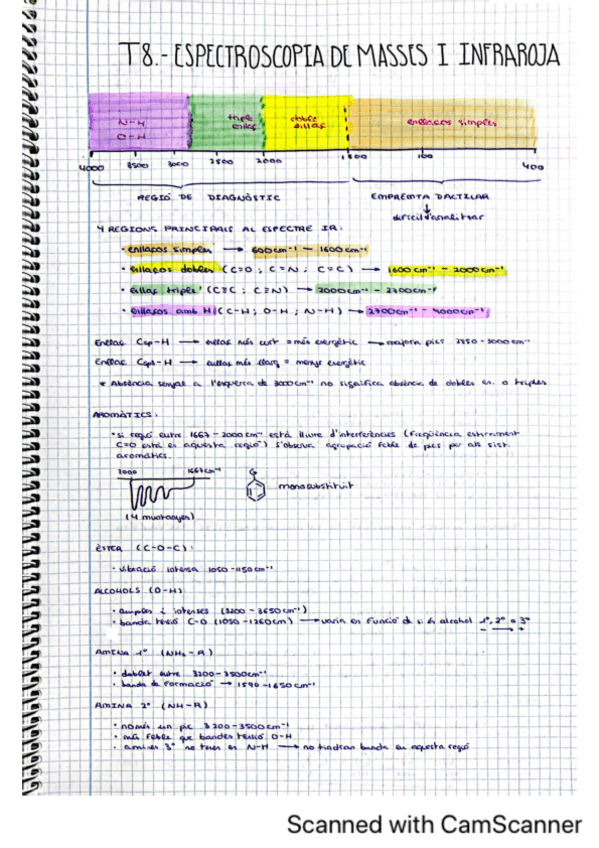 T8.- ESPECTROSCOPIA DE MASSES I INFRAROJA
N-H
O-H
triple
enllaç
doble
enllaços simples
4000 3500 3000 2500 2000 400
REGIÓ DE DIAGNÒSTIC
EMPREMTA DACTILAR
4 REGIONS PRINCIPALS AL ESPECTRE IR:
· enllaços simples → 600cm⁻¹ - 1600cm⁻¹
· enllaços dobles (C=O ; C=N ; C=C) → 1600 cm⁻¹ - 2000cm⁻¹
· enllaç triple (C≡C ; C≡N) → 2000cm⁻¹ - 2700cm⁻¹
· enllaços amb H (C-H ; O-H ; N-H) → 2700cm⁻¹ - 4000cm⁻¹
Enllaç Csp-H → enllaç més curt = més energètic → majoria pics 2850-3000cm⁻¹
Enllaç -H → enllaç més llarg = menys energètic
* Absència senyal a l'esquerra de 3000cm⁻¹ no significa absència de dobles en. o triples
AROMÀTICS:
· si regió entre 1667-2000cm⁻¹ està lliure d'interferències (freqüència estirament
C=O està en aquesta regió) s'observa agrupació feble de pics per als sist.
aromàtics.
2000 1667cm⁻¹
G
monosubstituït
(4 muntanyes)
ÈSTER (C-O-C):
· vibració intensa 1050-1150cm⁻¹
ALCOHOLS (O-H)
· amples i intenses (3200-3650cm⁻¹)
· banda tensió C-O (1050-1260cm) → varia en funció de si és alcohol 1º, 2º o 3º
AMINA 1º (NH₂-R)
· doblet entre 3200-3500cm⁻¹
· banda de formació → 1590-1650cm⁻¹
AMINA 2º (NH-R)
· només un pic 3200-3500cm⁻¹
· més feble que bandes tensió O-H
· amines 3º no tenen en N-H → no tindran banda en aquesta regió
Scanned with CamScanner